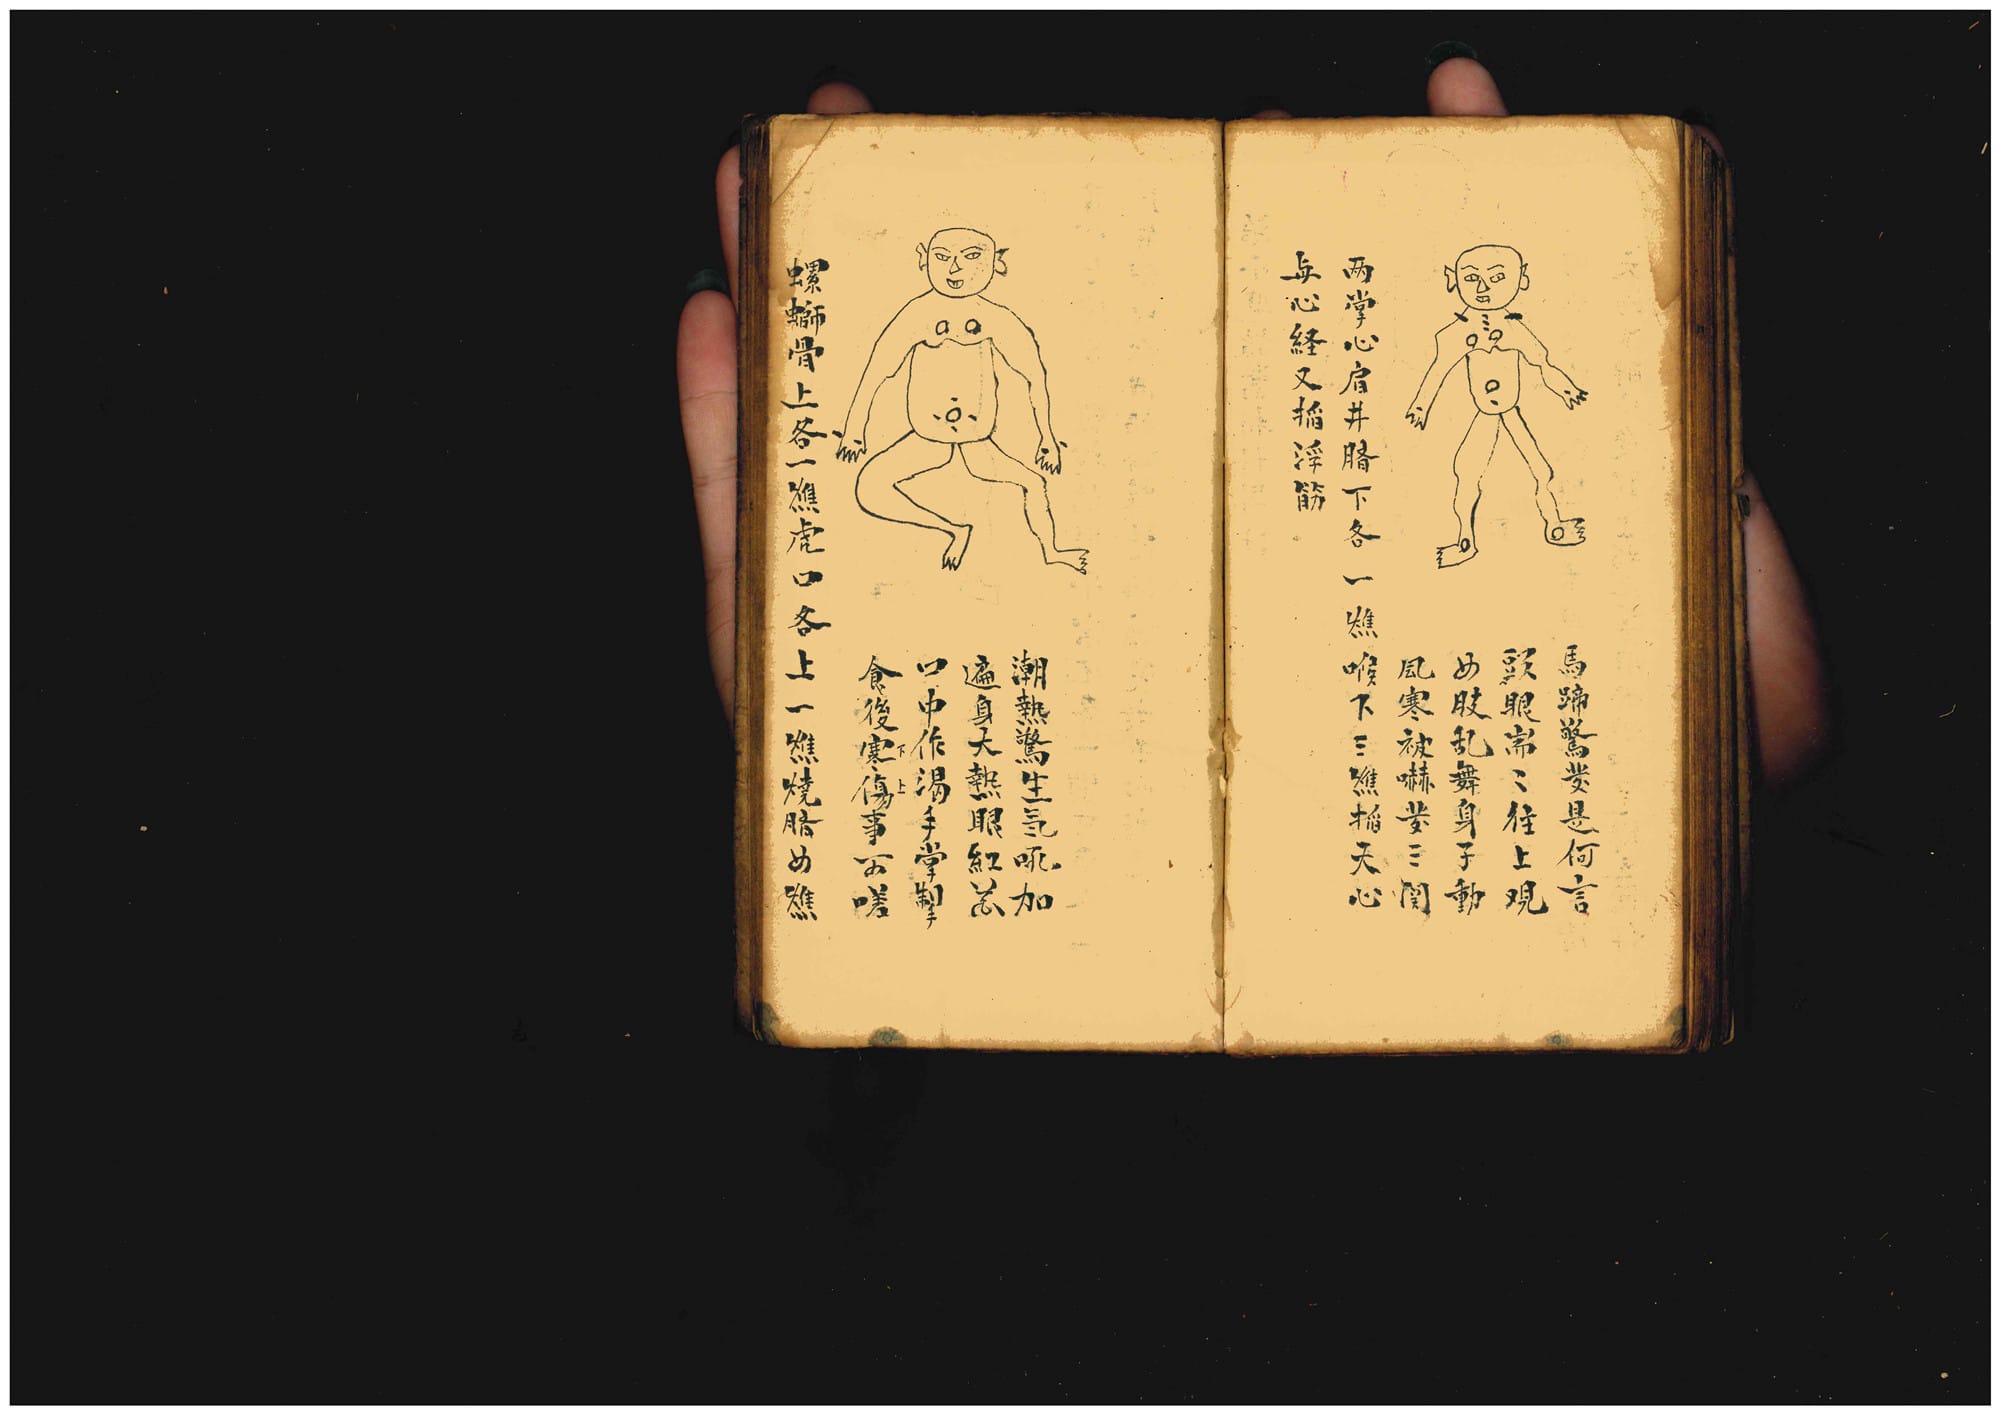 馬蹄驚發是何言
頭眼崇〻往上观
四肢乱舞身子動
風寒被嚇發三関
两掌心肩井臍下各一燋喉下三燋掐天心
与心経又掐浮筋
潮熱驚生氣吼加
遍身大熱眼紅花
口中作渴手掌掣
食後寒傷事可嗟
下上
螺螄骨上各一燋虎口各上一燋燒臍四燋